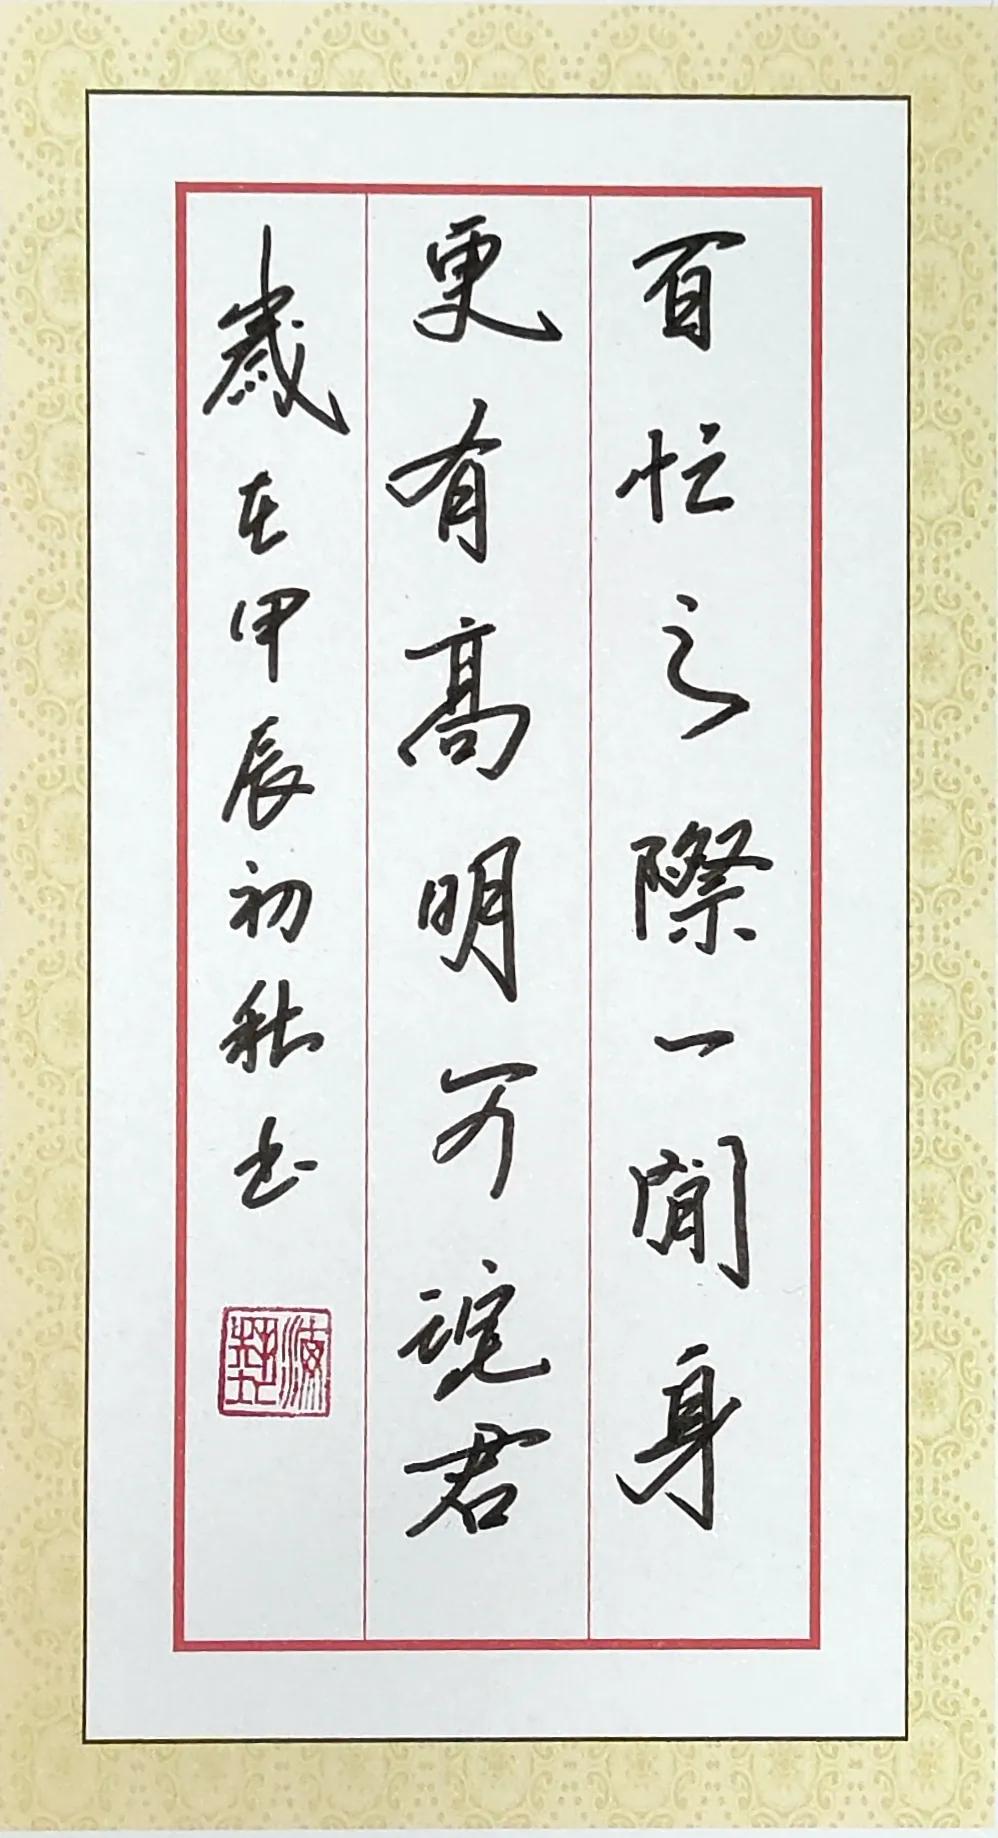 百忙之際一閒身
更有高明可詫君
歲在甲辰初秋書